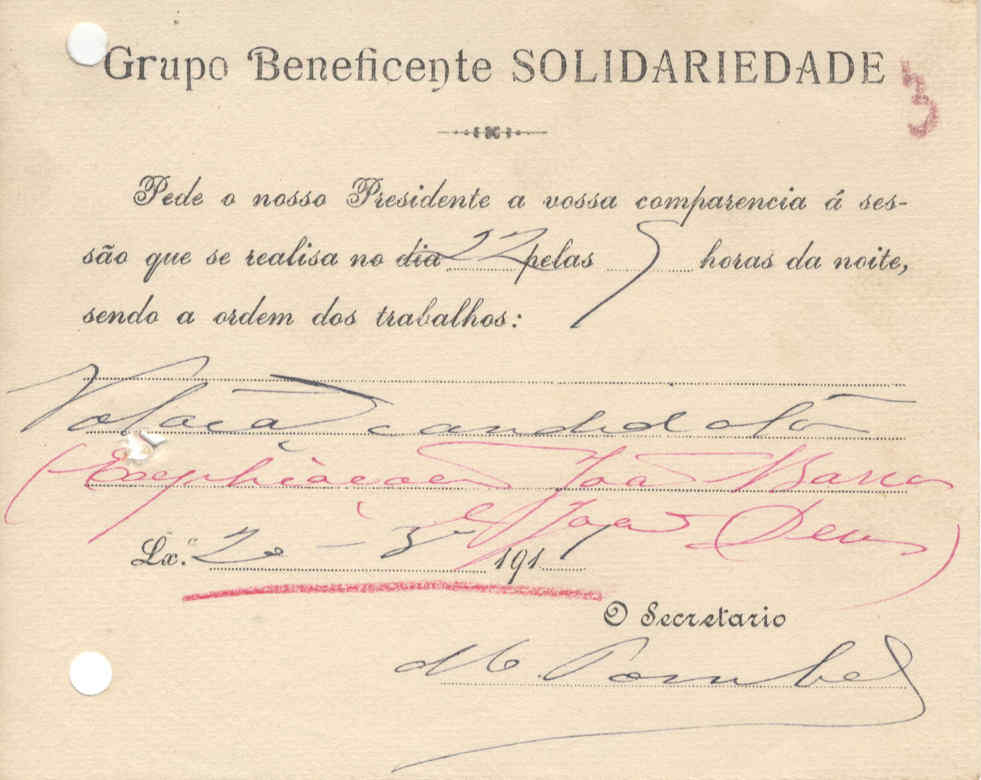 Grupo Beneficente SOLIDARIEDADE
3
Pede o nosso Presidente a vossa comparencia á ses-
são que se realisa no dia 22 pelas 9 horas da noite,
sendo a ordem dos trabalhos:
Votação candidato
(Explicação João Barros
e João Deus)
Lx.ª 20 - 3 191
O Secretario
M. Pombal